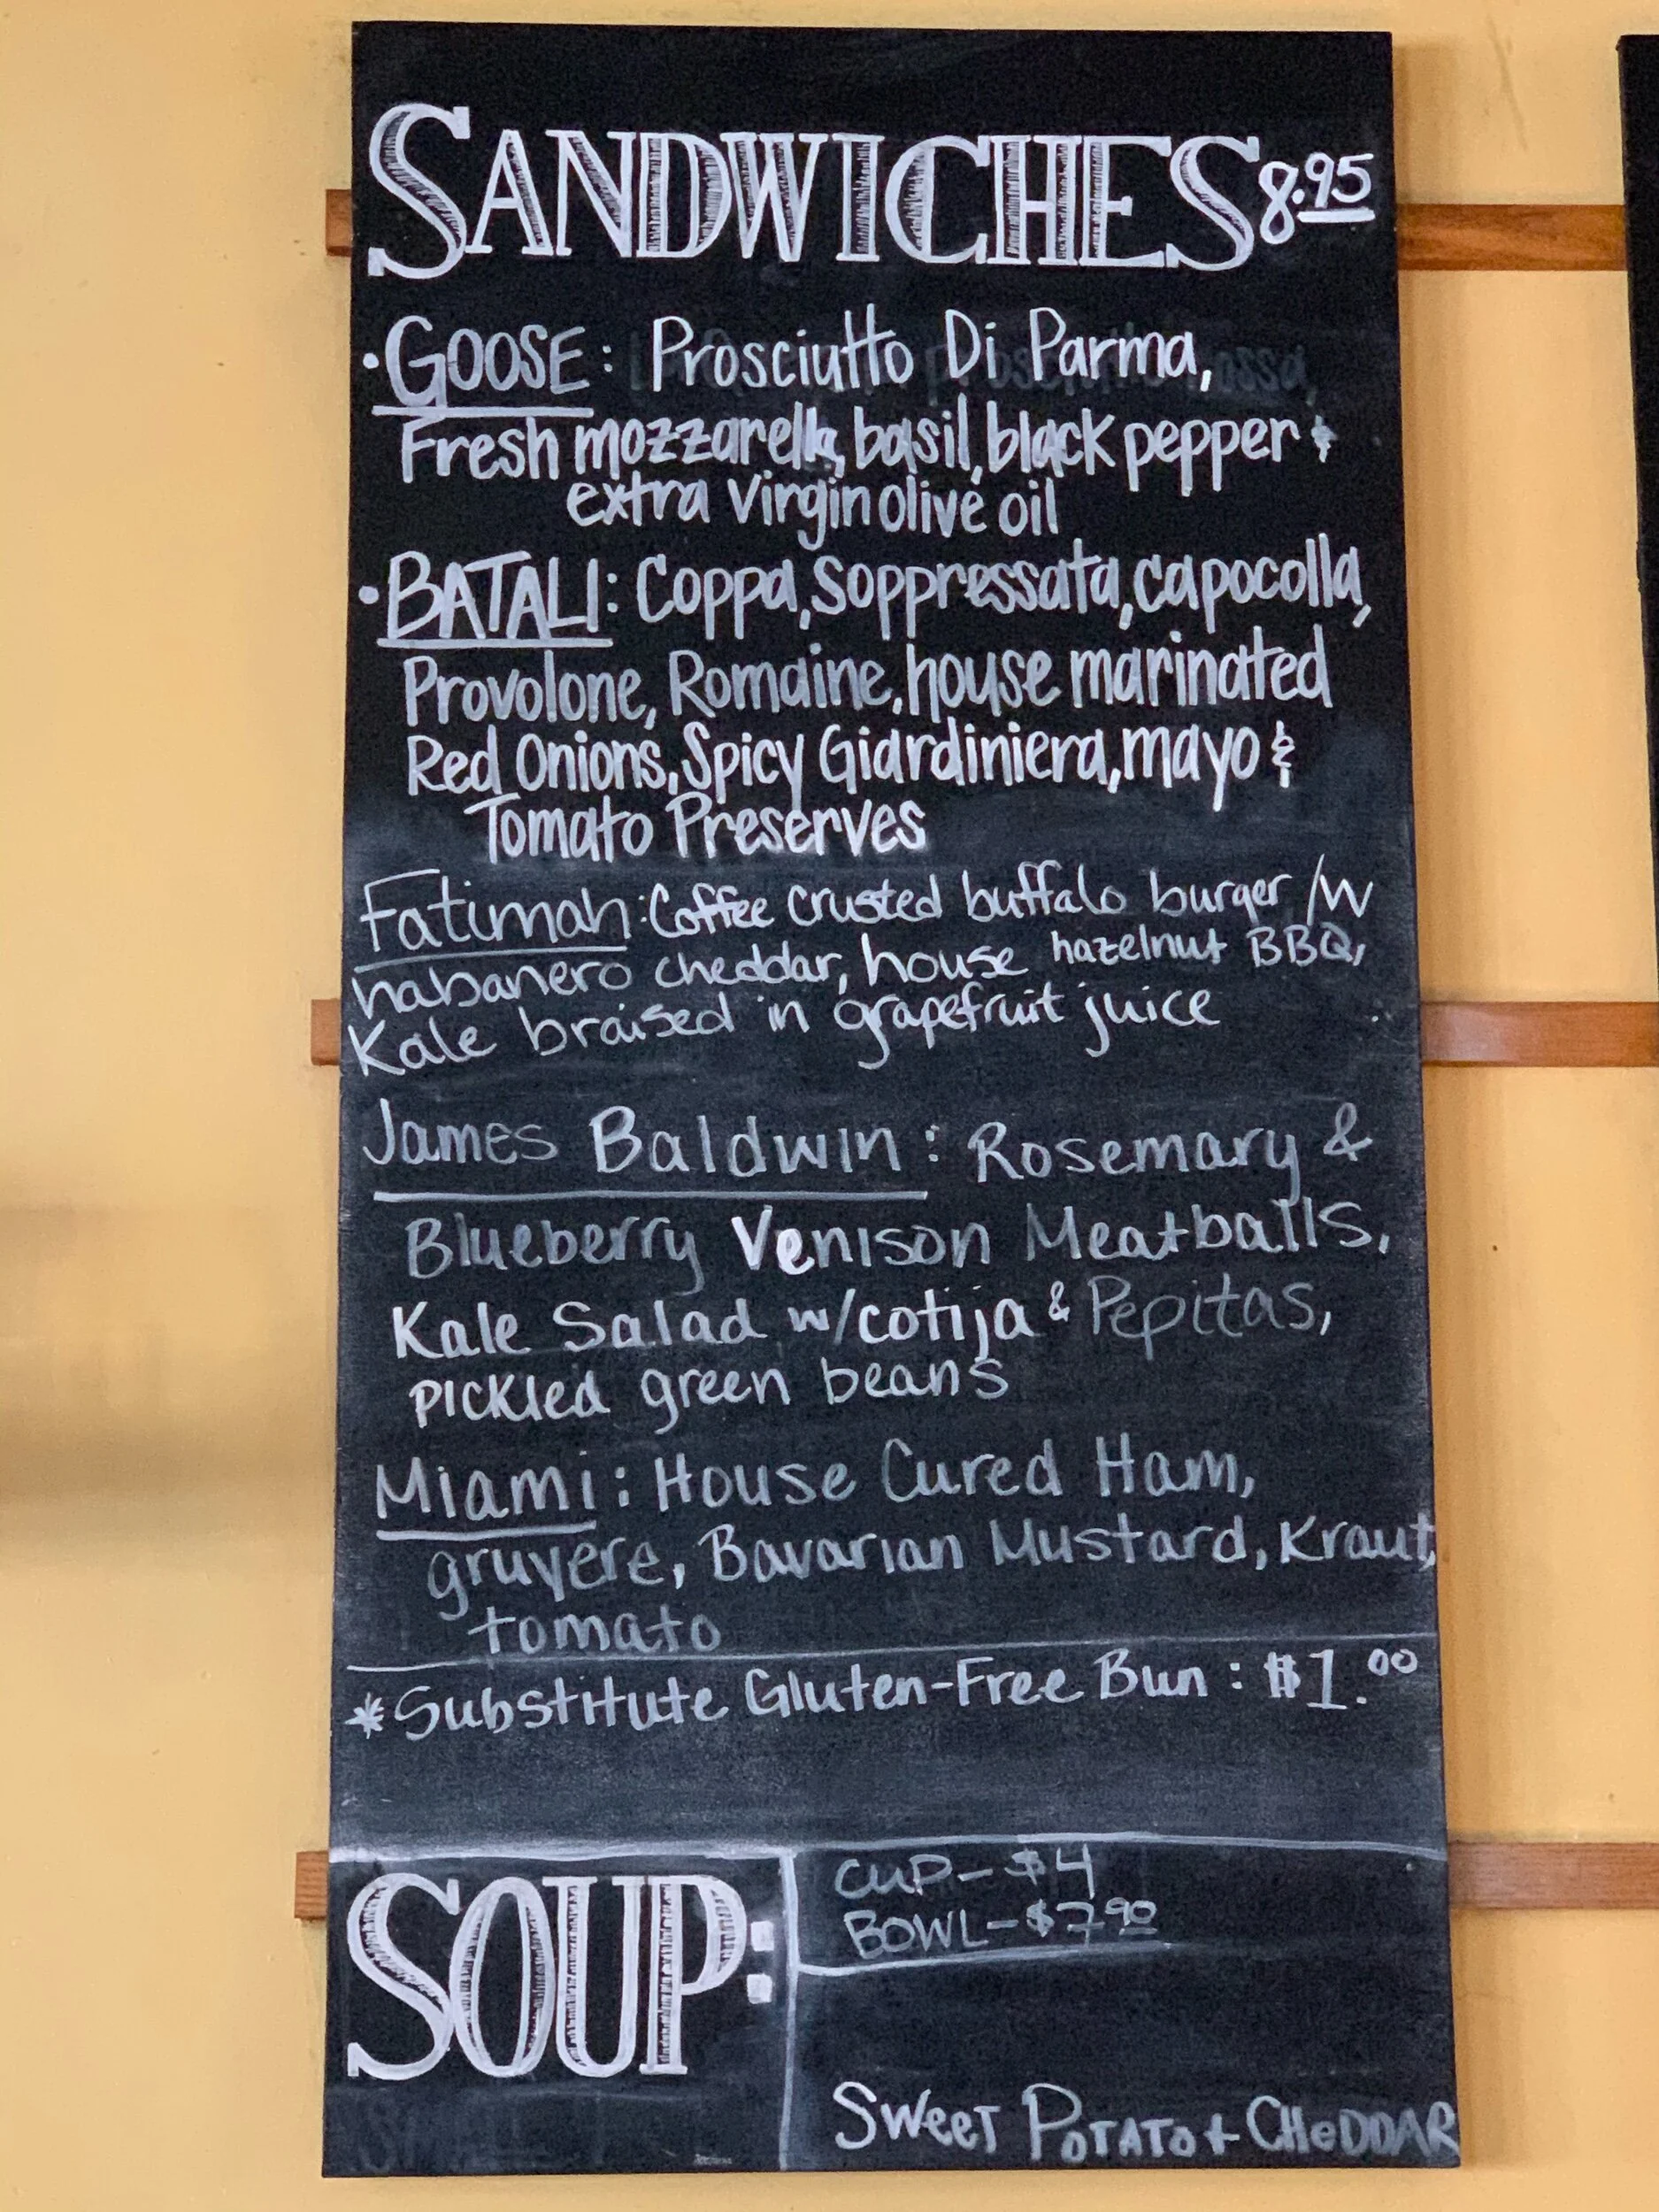 SANDWICHES 8.95
• GOOSE: Prosciutto Di Parma,
Fresh mozzarella, basil, black pepper &
extra virgin olive oil
• BATALI: Coppa, Soppressata, capocolla,
Provolone, Romaine, house marinated
Red Onions, Spicy Giardiniera, mayo &
Tomato Preserves
Fatimah: Coffee crusted buffalo burger /w
habanero cheddar, house hazelnut BBQ,
Kale braised in grapefruit juice
James Baldwin: Rosemary &
Blueberry Venison Meatballs,
Kale Salad w/cotija & Pepitas,
pickled green beans
Miami: House Cured Ham,
gruyere, Bavarian Mustard, Kraut,
tomato
*Substitute Gluten-Free Bun: $1.00
SOUP:
CUP- $4
BOWL- $7.90
SWEET POTATO + CHEDDAR